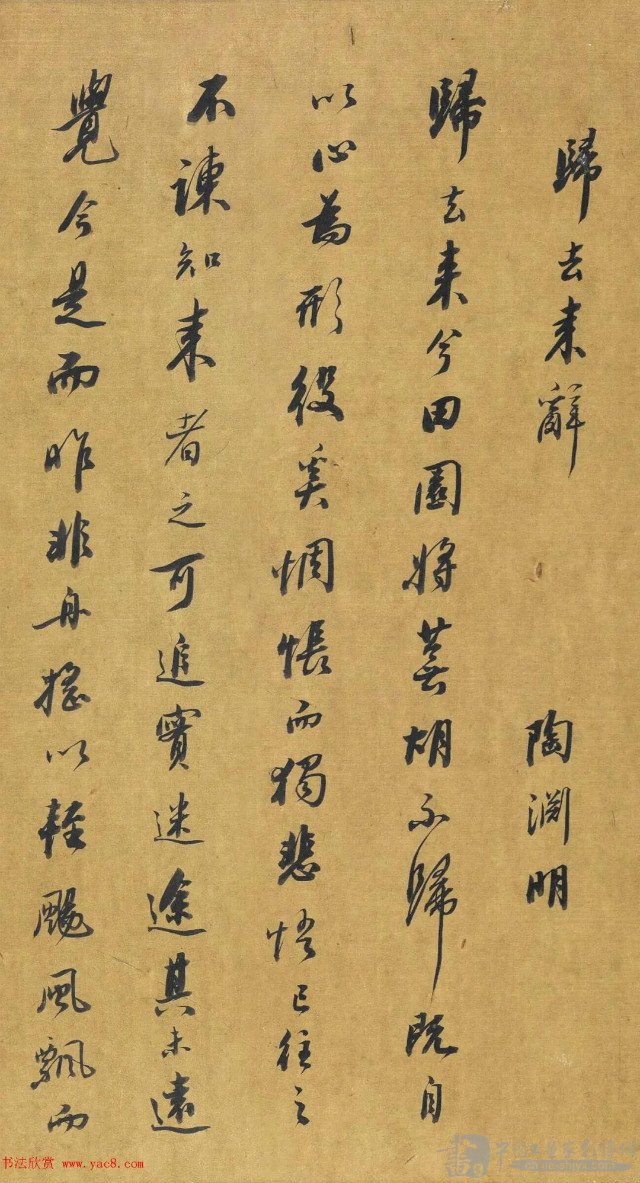 歸去来辭
陶淵明
歸去来兮田園將蕪胡不歸既自
以心為形役奚惆悵而獨悲悟已往之
不諫知来者之可追實迷途其未遠
覺今是而昨非舟搖以輕颺風飄而
书法欣赏 www.yac8.com